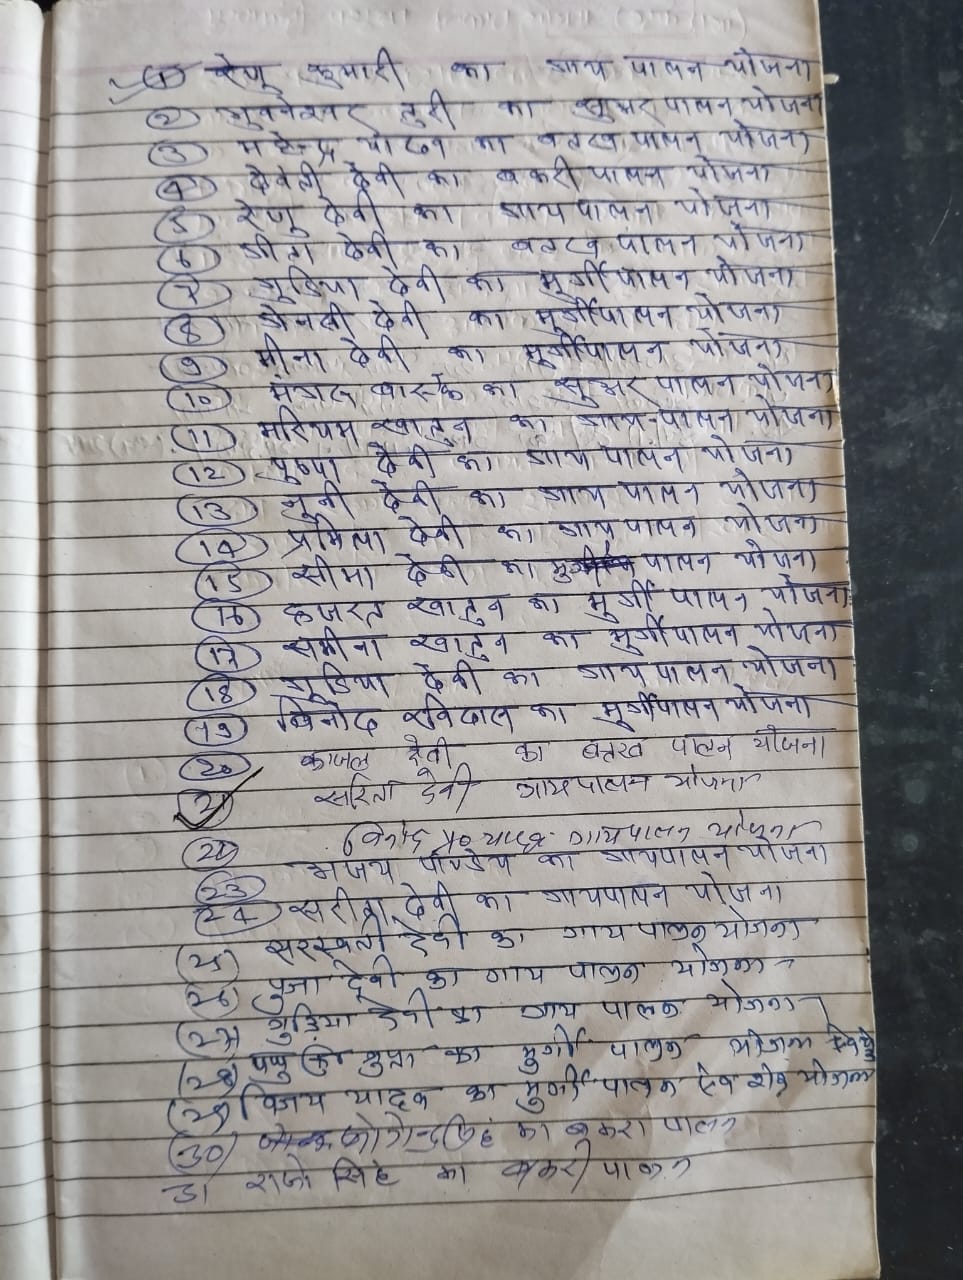 ① रेणु कुमारी का गाय पालन योजना
② भुवनेश्वर तुरी का सुअर पालन योजना
③ महेन्द्र यादव का बतख पालन योजना
④ देवंती देवी का बकरी पालन योजना
⑤ रेणु देवी का गाय पालन योजना
⑥ गीता देवी का बतख पालन योजना
⑦ गुडिया देवी का मुर्गी पालन योजना
⑧ देवी का मुर्गी पालन योजना
⑨ मीना देवी का मुर्गी पालन योजना
⑩ बास्के का सुअर पालन योजना
⑪ मरियम खातुन का गाय-पालन योजना
⑫ पुष्पा देवी का गाय पालन योजना
⑬ देवी का गाय पालन योजना
⑭ प्रमिला देवी का गाय पालन योजना
⑮ सीमा देवी का पालन योजना
⑯ हजरत खातुन का मुर्गी पालन योजना
⑰ खातुन का मुर्गी पालन योजना
⑱ गुडिया देवी का गाय पालन योजना
⑲ बिनोद रविदास का मुर्गी पालन योजना
⑳ काजल देवी का बतख पालन योजना
㉑ सरिता देवी गाय पालन योजना
㉒ बिनोद प्र० यादव गाय पालन योजना
㉓ अजय पाण्डेय का गाय पालन योजना
㉔ सरीता देवी का गाय पालन योजना
㉕ सरस्वती देवी का गाय पालन योजना
㉖ पुजा देवी का गाय पालन योजना
㉗ गुड़िया देवी का गाय पालन योजना
㉘ पप्पु गुप्ता का मुर्गी पालन योजना
㉙ विजय यादव का मुर्गी पालन योजना
㉚ सिंह का बकरा पालन
31 राजो सिंह का बकरी पालन